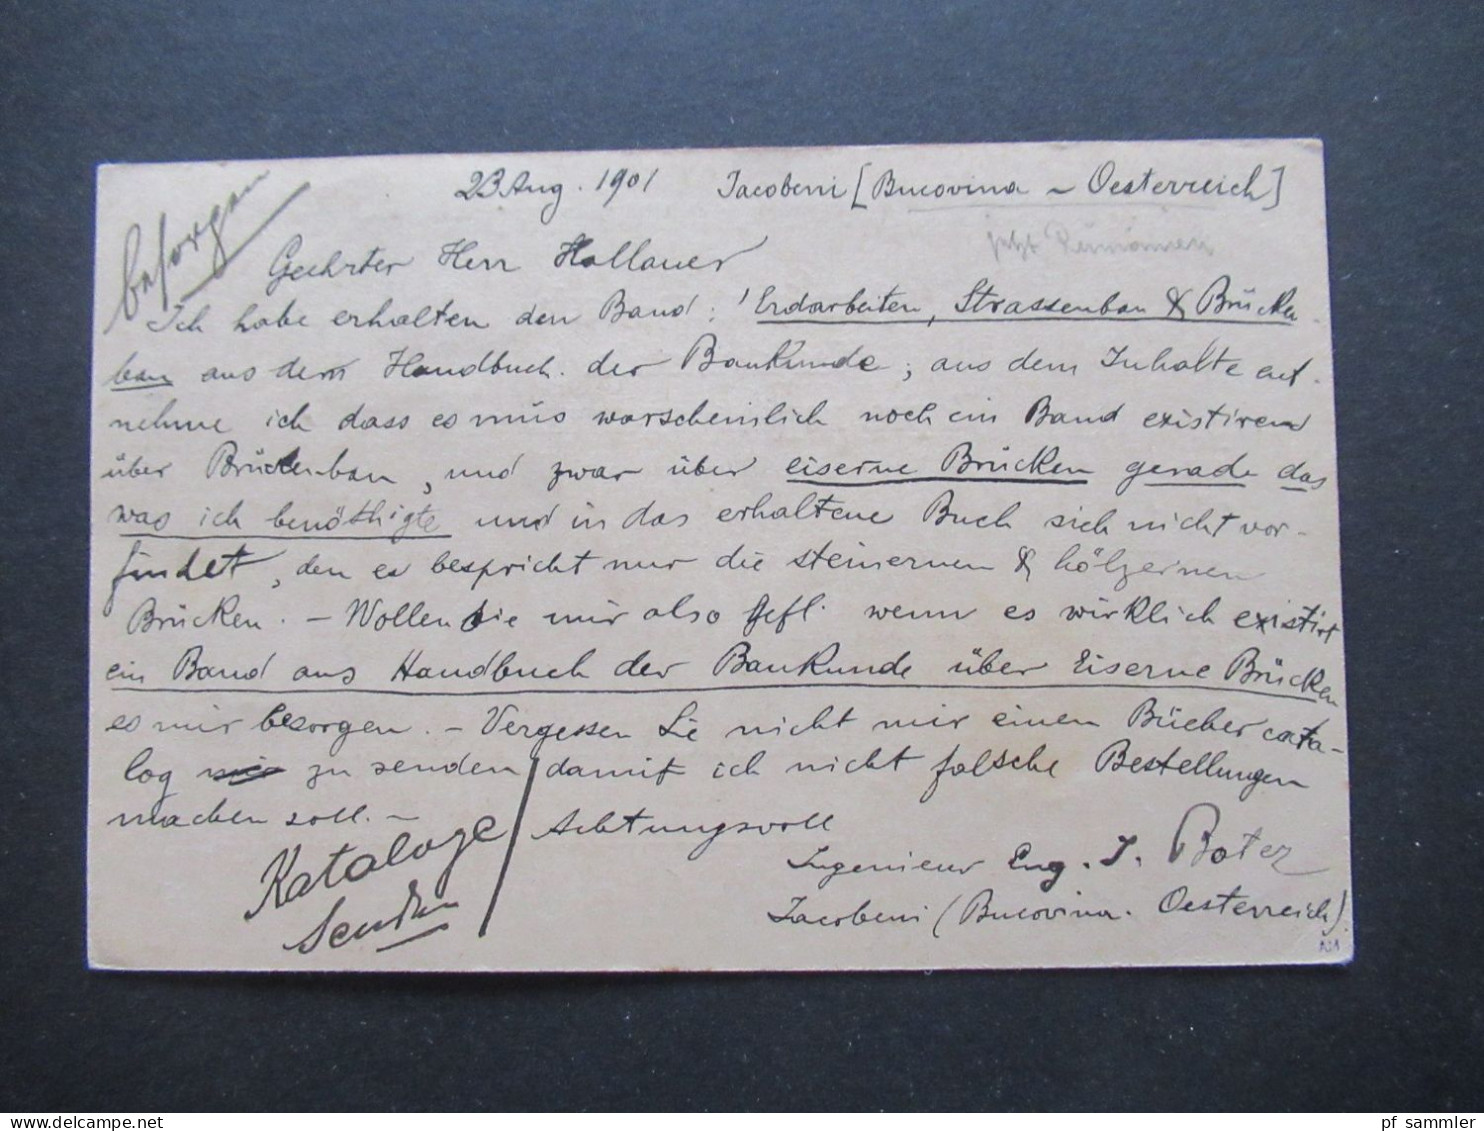 besorgen
23 Aug. 1901 Jacobeni [Bucovina - Oesterreich]
jetzt Rumänien
Geehrter Herr Hollauer
Ich habe erhalten den Band: 'Erdarbeiten, Strassenbau & Brücken
bau aus dem Handbuch der Baukunde; aus dem Inhalte ent-
nehme ich dass es mus warscheinlich noch ein Band existiren
über Brückenbau, und zwar über eiserne Brücken gerade das
was ich benöthigte und in das erhaltene Buch sich nicht vor-
findet, den es bespricht nur die steinernen & hölzernen
Brücken. - Wollen Sie mir also gefl. wenn es wirklich existirt
ein Band aus Handbuch der Baukunde über Eiserne Brücken
es mir besorgen. - Vergessen Sie nicht mir einen Bücher cata-
log zu senden damit ich nicht falsche Bestellungen
machen soll. -
Achtungsvoll
Kataloge
senden
Ingenieur Eug. J. Botez
Jacobeni (Bucovina. Oesterreich).
pf sammler